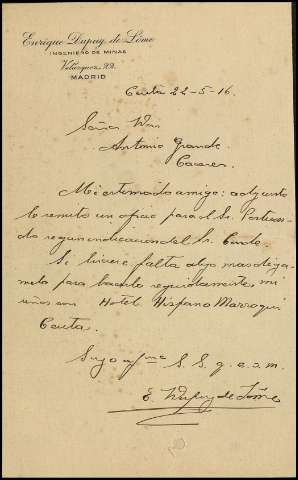 Enrique Dupuy de Lôme
INGENIERO DE MINAS
Velázquez, 22.
MADRID
Ceuta 22-5-16.
Señor Don
Antonio Grande
Caceres.
Mi estimado amigo: adjunto
le remito un oficio para el Sr.
do según indicacion del Sr.
Si hiciere falta algo mas diga
melo para hacerlo seguidamente, mi
señas son Hotel Hispano Marroqui
Ceuta.
Suyo afmo S. S. q. e. s. m.
E. Dupuy de Lôme